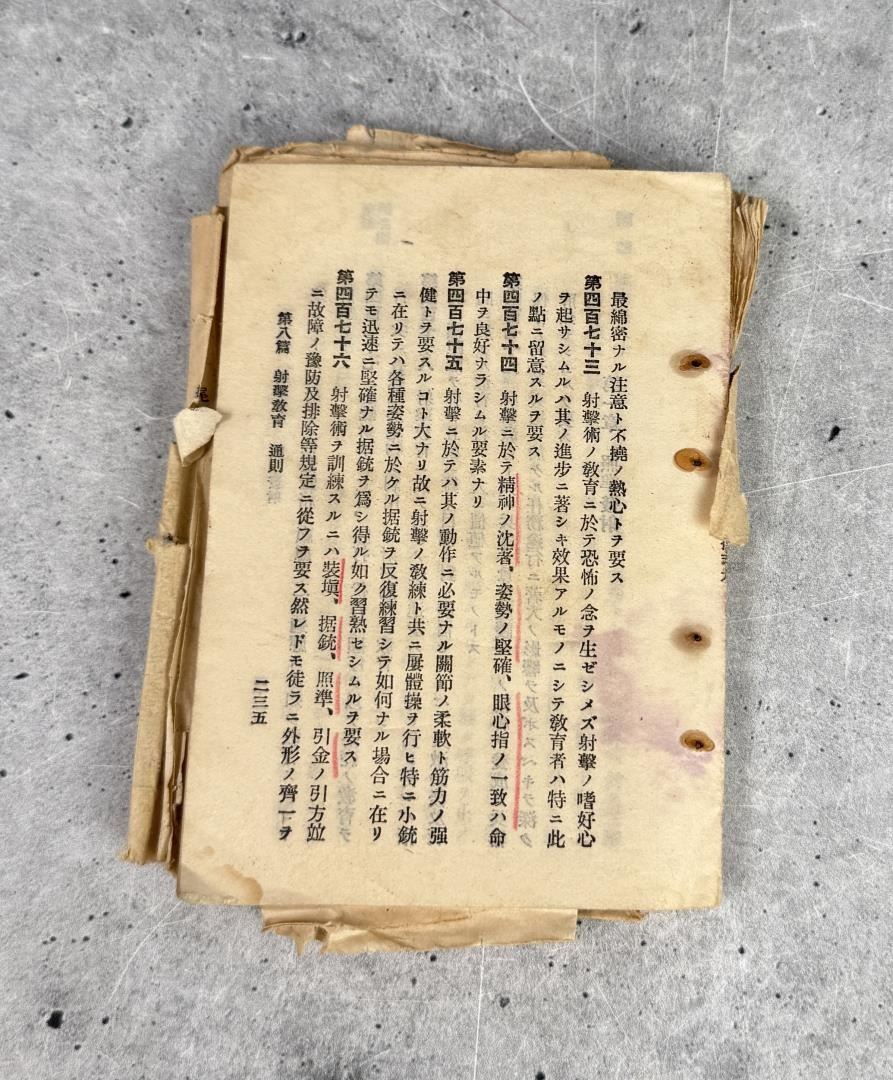 最綿密ナル注意ト不撓ノ熱心トヲ要ス
第四百七十三 射擊術ノ敎育ニ於テ恐怖ノ念ヲ生ゼシメズ射擊ノ嗜好心
ヲ起サシムルハ其ノ進步ニ著シキ效果アルモノニシテ敎育者ハ特ニ此
ノ點ニ留意スルヲ要ス
第四百七十四 射擊ニ於テ精神ノ沈著、姿勢ノ堅確、眼心指ノ一致ハ命
中ヲ良好ナラシムル要素ナリ
第四百七十五 射擊ニ於テハ其ノ動作ニ必要ナル關節ノ柔軟ト筋力ノ强
健トヲ要スルコト大ナリ故ニ射擊ノ敎練ト共ニ屢體操ヲ行ヒ特ニ小銃
ニ在リテハ各種姿勢ニ於ケル据銃ヲ反復練習シテ如何ナル場合ニ在リ
テモ迅速ニ堅確ナル据銃ヲ爲シ得ル如ク習熟セシムルヲ要ス
第四百七十六 射擊術ヲ訓練スルニハ裝塡、据銃、照準、引金ノ引方竝
ニ故障ノ豫防及排除等規定ニ從フヲ要ス然レドモ徒ラニ外形ノ齊一ヲ
第八篇 射擊敎育 通則
二三五